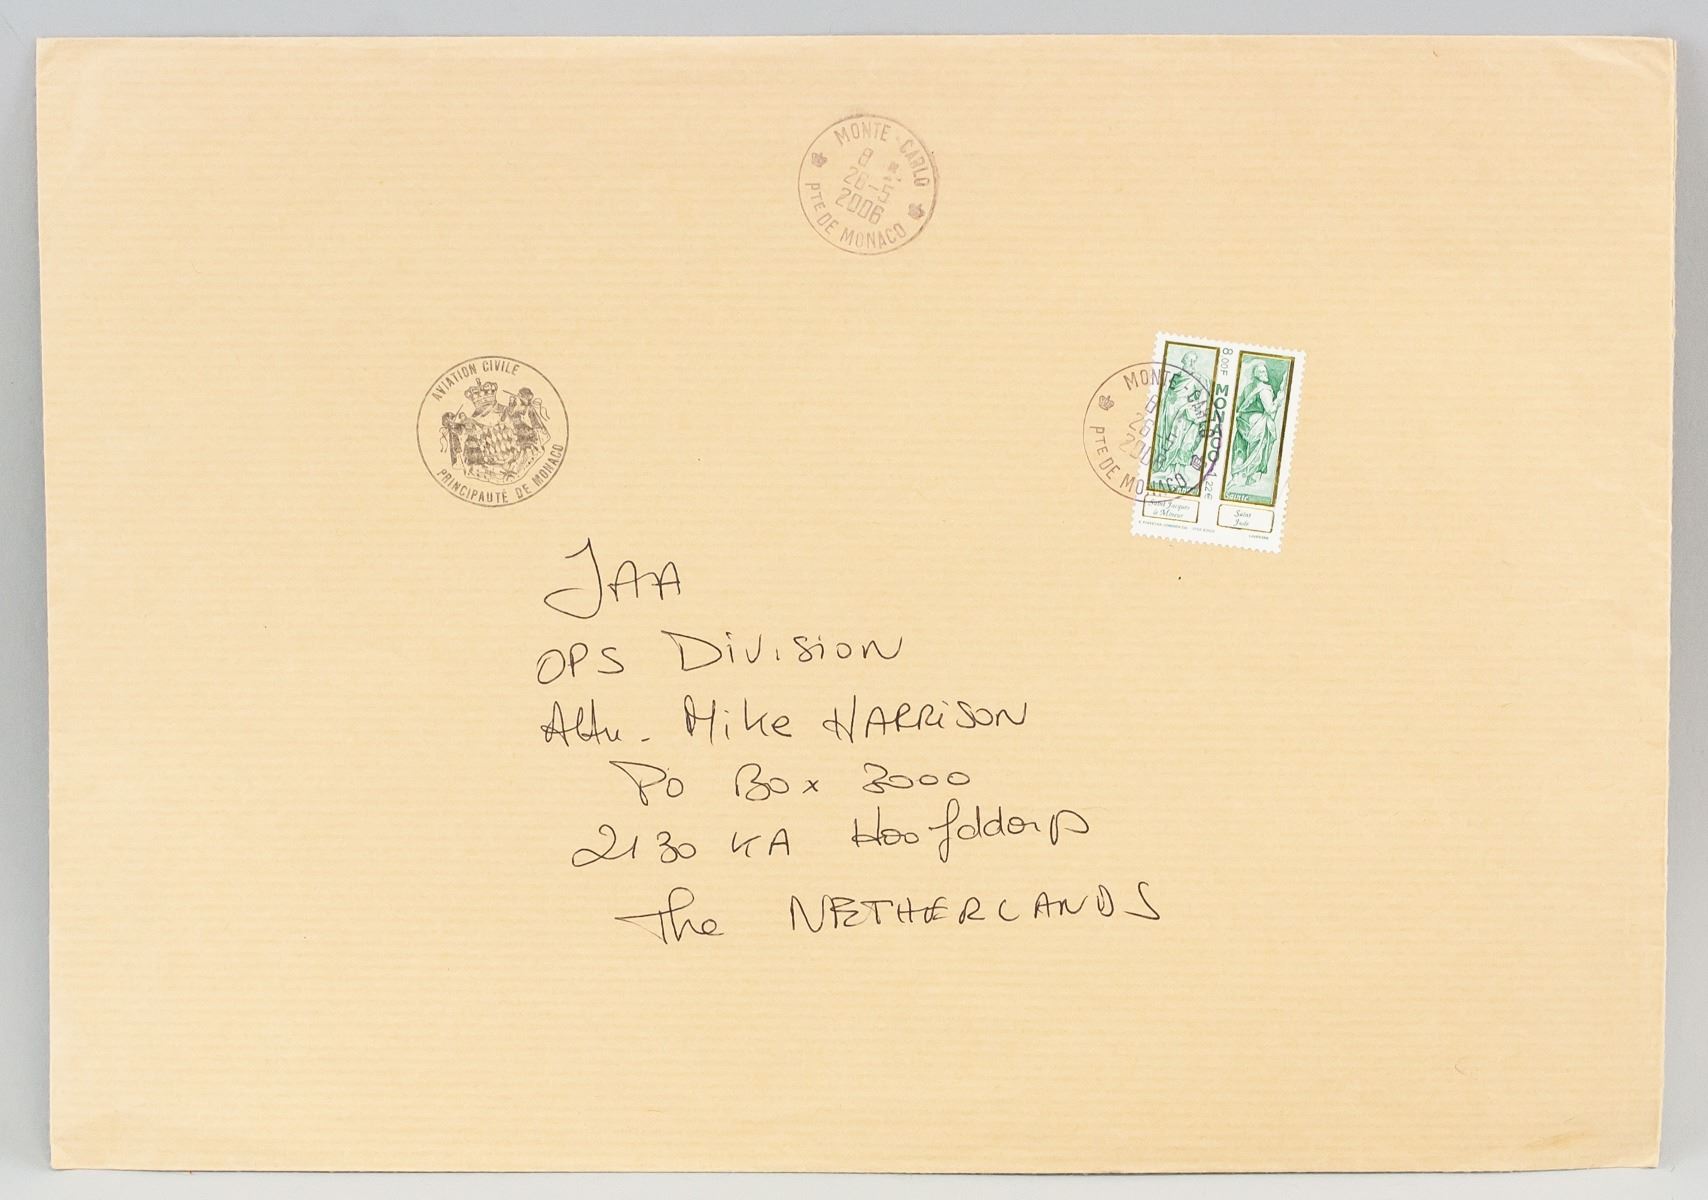 MONTE-CARLO
8
26-5
2006
PTE DE MONACO
AVIATION CIVILE
PRINCIPAUTÉ DE MONACO
8.00F MONACO 1.22€
MONTE-CARLO
8
26-5
2006
PTE DE MONACO
Saint Jacques
le Mineur
Saint
Jude
JAA
OPS Division
Attn. Mike HARRISON
PO Box 3000
2130 KA Hoofddorp
The NETHERLANDS